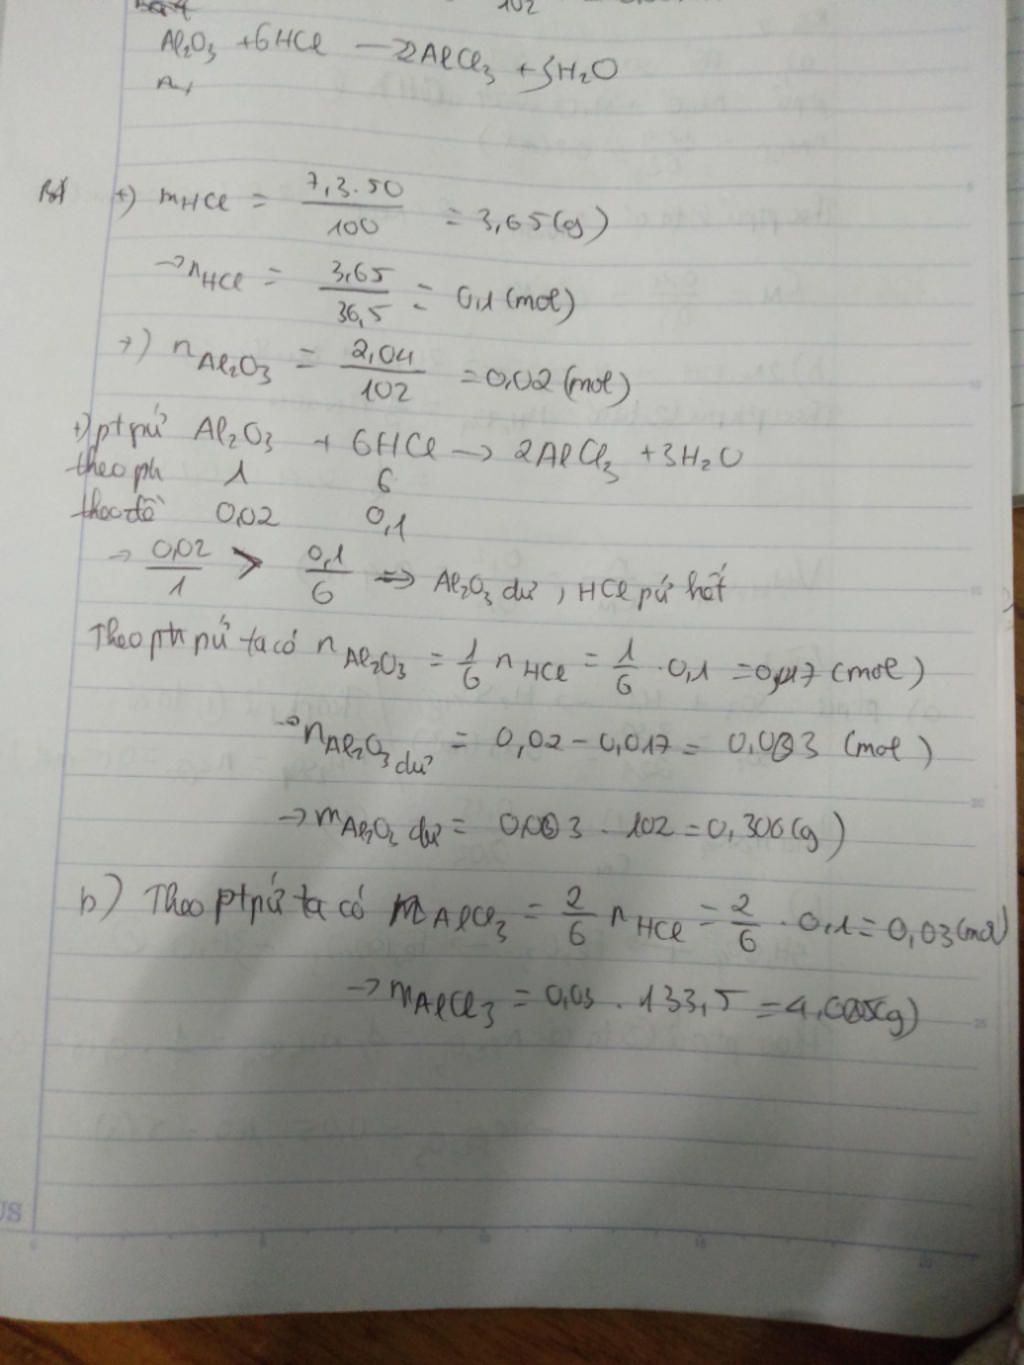 102
Al₂O₃ + 6HCl → 2AlCl₃ + 3H₂O
+) mHCl = 7,3.50/100 = 3,65(g)
→ nHCl = 3,65/36,5 = 0,1 (mol)
+) nAl₂O₃ = 2,04/102 = 0,02 (mol)
+) pt pứ Al₂O₃ + 6HCl → 2AlCl₃ + 3H₂O
theo ph 1 6
theo đề 0,02 0,1
→ 0,02/1 > 0,1/6 => Al₂O₃ dư, HCl pứ hết
Theo pth pứ ta có nAl₂O₃ = 1/6 nHCl = 1/6 . 0,1 = 0,017 (mol)
→ nAl₂O₃ dư = 0,02 - 0,017 = 0,003 (mol)
→ mAl₂O₃ dư = 0,003 . 102 = 0,306(g)
b) Theo pt pứ ta có nAlCl₃ = 2/6 nHCl = 2/6 . 0,1 = 0,03 (mol)
→ mAlCl₃ = 0,03 . 133,5 = 4,005(g)
US